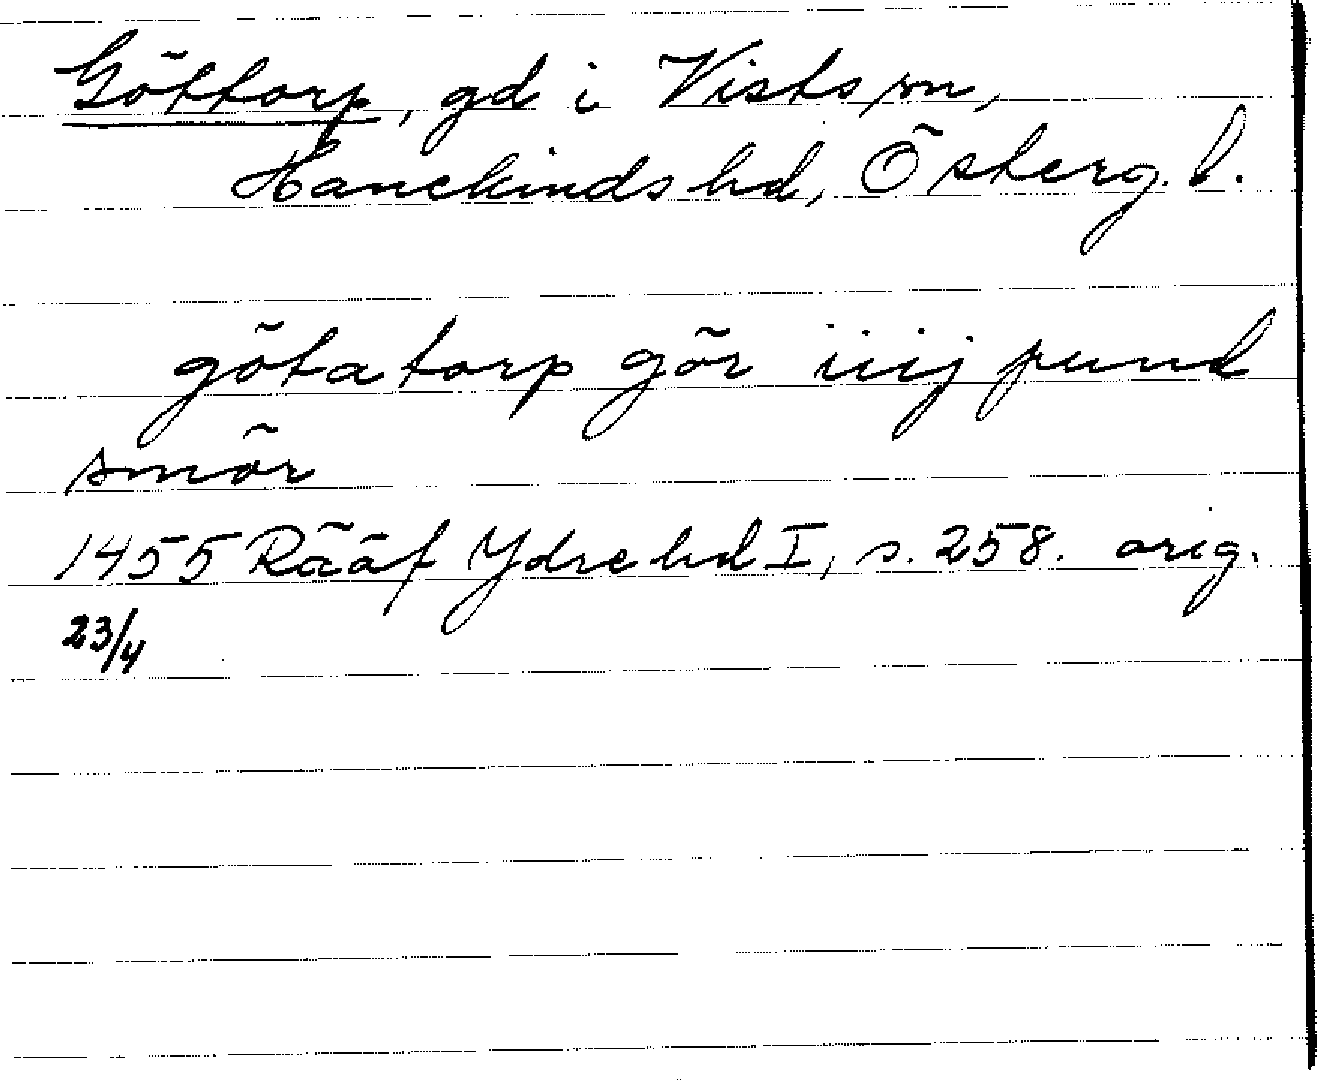 Göttorp, gd i Vists sn,
Hanekinds hd, Österg. l.
götatorp gör iiij pund
smör
1455 Rääf Ydre hd I, s. 258. orig.
23/4